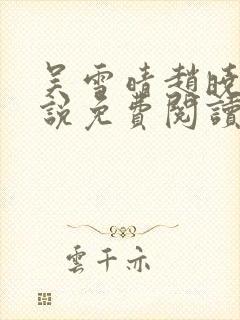 吴雪晴趙曉
說免費閱讀
雲千亦